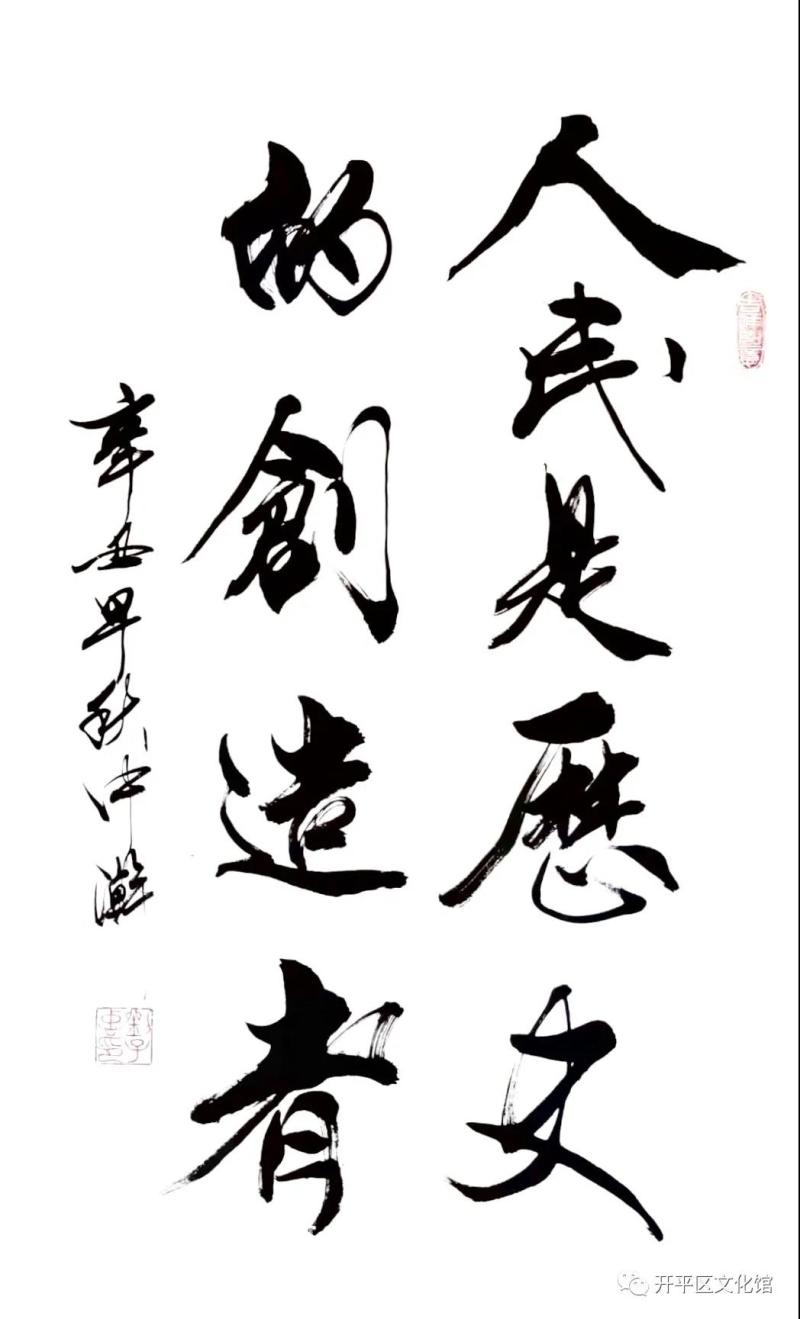 人民是歷史
的創造者
辛丑早秋
开平区文化馆